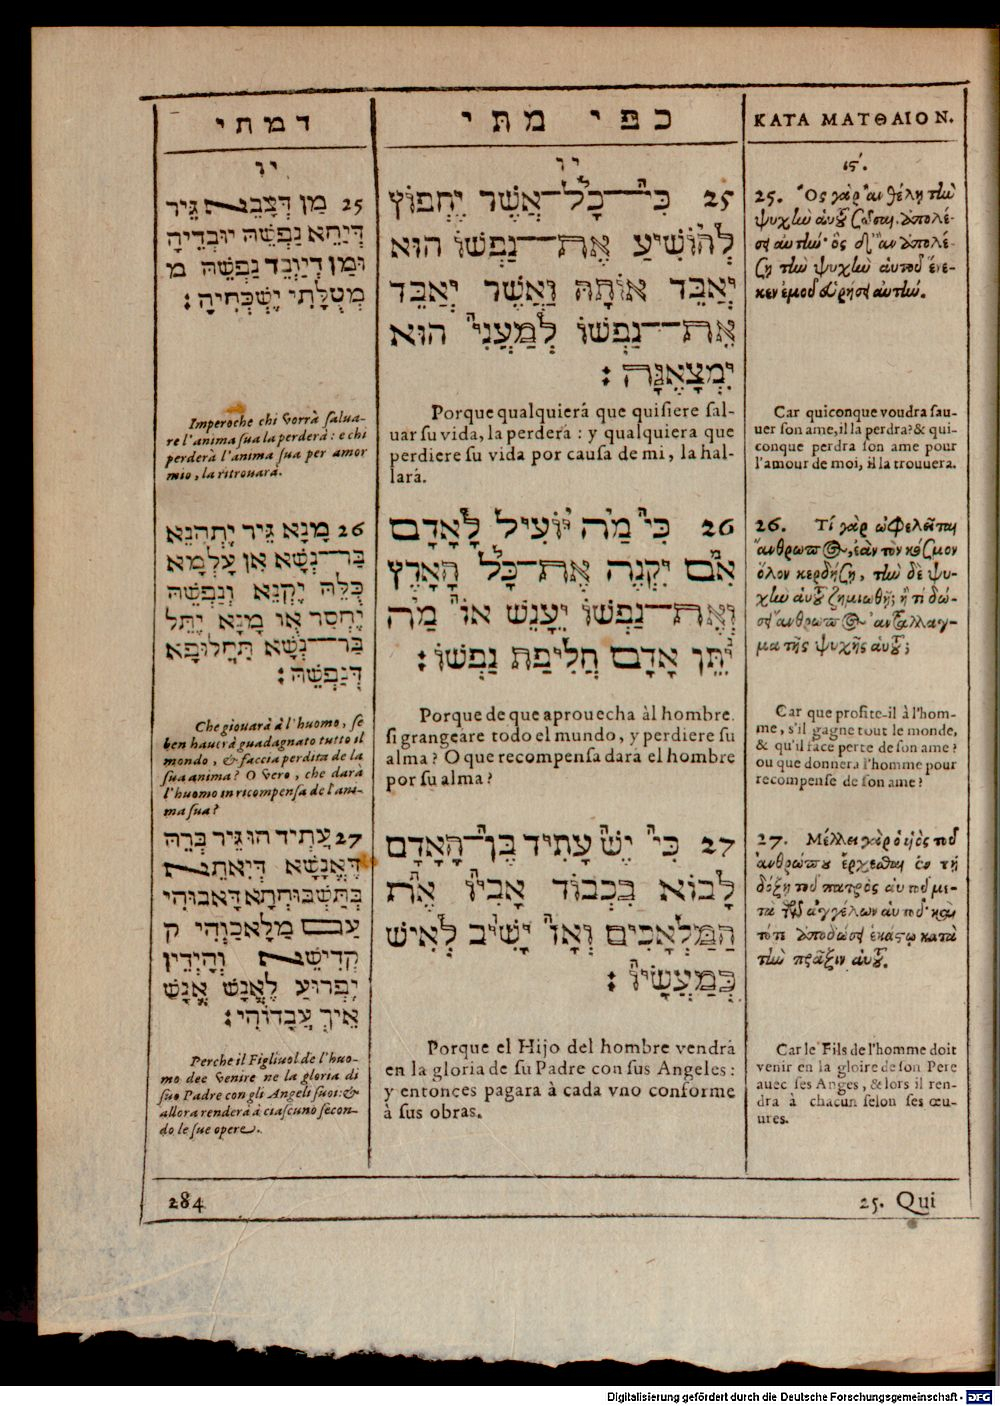 דמתי
יו
25 מן דצבא גיר
דיחא נפשה יובדיה
ומן דיובד נפשה מ
מטלתי ישכחיה:
Imperoche chi vorrà ſalua-
re l'anima ſua la perderà: e chi
perderà l'anima ſua per amor
mio, la ritrouarà.
26 מנא גיר יתהנא
בר־נשא אן עלמא
כלה יקנא ונפשה
יחסר או מנא יתל
בר־נשא תחלופא
דנפשה:
Che giouarà à l'huomo, ſe
ben hauerà guadagnato tutto il
mondo, & faccia perdita de la
ſua anima? O vero, che darà
l'huomo in ricompenſa de l'ani-
ma ſua?
27 עתיד הו גיר ברה
דאנשא דיאתא
בתשבוחתא דאבוהי
עם מלאכוהי ק
קדישא והידין
יפרוע לאנש אנש
איך עבדוהי:
Perche il Figliuol de l'huo-
mo dee venire ne la gloria di
ſuo Padre con gli Angeli ſuoi: &
allora renderà à ciaſcuno ſecon-
do le ſue opere.
284
כפי מתי
יו
25 כי כל־אשר יחפוץ
להושיע את־נפשו הוא
יאבד אותה ואשר יאבד
את־נפשו למעני הוא
ימצאנה:
Porque qualquierá que quiſiere ſal-
uar ſu vida, la perderá: y qualquiera que
perdiere ſu vida por cauſa de mi, la hal-
lará.
26 כי מה יועיל לאדם
אם יקנה את־כל הארץ
ואת־נפשו יענש או מה
יתן אדם חליפת נפשו:
Porque de que aprouecha àl hombre.
ſi grangeare todo el mundo, y perdiere ſu
alma? O que recompenſa dará el hombre
por ſu alma?
27 כי יש עתיד בן־האדם
לבוא בכבוד אביו את
המלאכים ואז ישיב לאיש
כמעשיו:
Porque el Hijo del hombre vendrá
en la gloria de ſu Padre con ſus Angeles:
y entonces pagara à cada vno conforme
à ſus obras.
ΚΑΤΑ ΜΑΤΘΑΙΟΝ.
ις΄.
25. Ὃς γὰρ ἂν θέλῃ τὴν
ψυχὴν αὐτοῦ σῶσαι, ἀπολέ-
σει αὐτήν· ὃς δ' ἂν ἀπολέ-
σῃ τὴν ψυχὴν αὐτοῦ ἕνε-
κεν ἐμοῦ εὑρήσει αὐτήν.
Car quiconque voudra ſau-
uer ſon ame, il la perdra: & qui-
conque perdra ſon ame pour
l'amour de moi, il la trouuera.
26. Τί γὰρ ὠφελεῖται
ἄνθρωπος, ἐὰν τὸν κόσμον
ὅλον κερδήσῃ, τὴν δὲ ψυ-
χὴν αὐτοῦ ζημιωθῇ; ἢ τί δώ-
σει ἄνθρωπος ἀντάλλαγ-
μα τῆς ψυχῆς αὐτοῦ;
Car que profite-il à l'hom-
me, s'il gagne tout le monde,
& qu'il face perte de ſon ame?
ou que donnera l'homme pour
recompenſe de ſon ame?
27. Μέλλει γὰρ ὁ υἱὸς τοῦ
ἀνθρώπου ἔρχεσθαι ἐν τῇ
δόξῃ τοῦ πατρὸς αὐτοῦ με-
τὰ τῶν ἀγγέλων αὐτοῦ· καὶ
τότε ἀποδώσει ἑκάστῳ κατὰ
τὴν πρᾶξιν αὐτοῦ.
Car le Fils de l'homme doit
venir en la gloire de ſon Pere
auec ſes Anges, & lors il ren-
dra à chacun ſelon ſes œu-
ures.
25. Qui
Digitalisierung gefördert durch die Deutsche Forschungsgemeinschaft - DFG